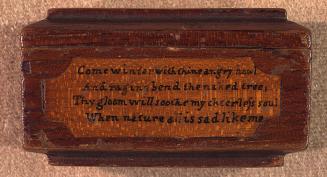 Come winter with thine angry howl
And raging bend the naked tree;
Thy gloom will soothe my cheerless soul
When nature all is sad like me